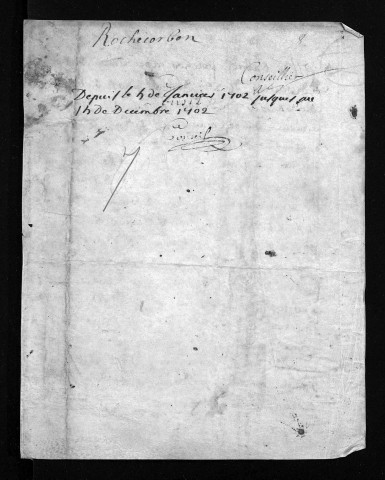 Rochecorbon
Conseiller
Depuis le 4 de Janvier 1702 jusques au
14 de Decembre 1702